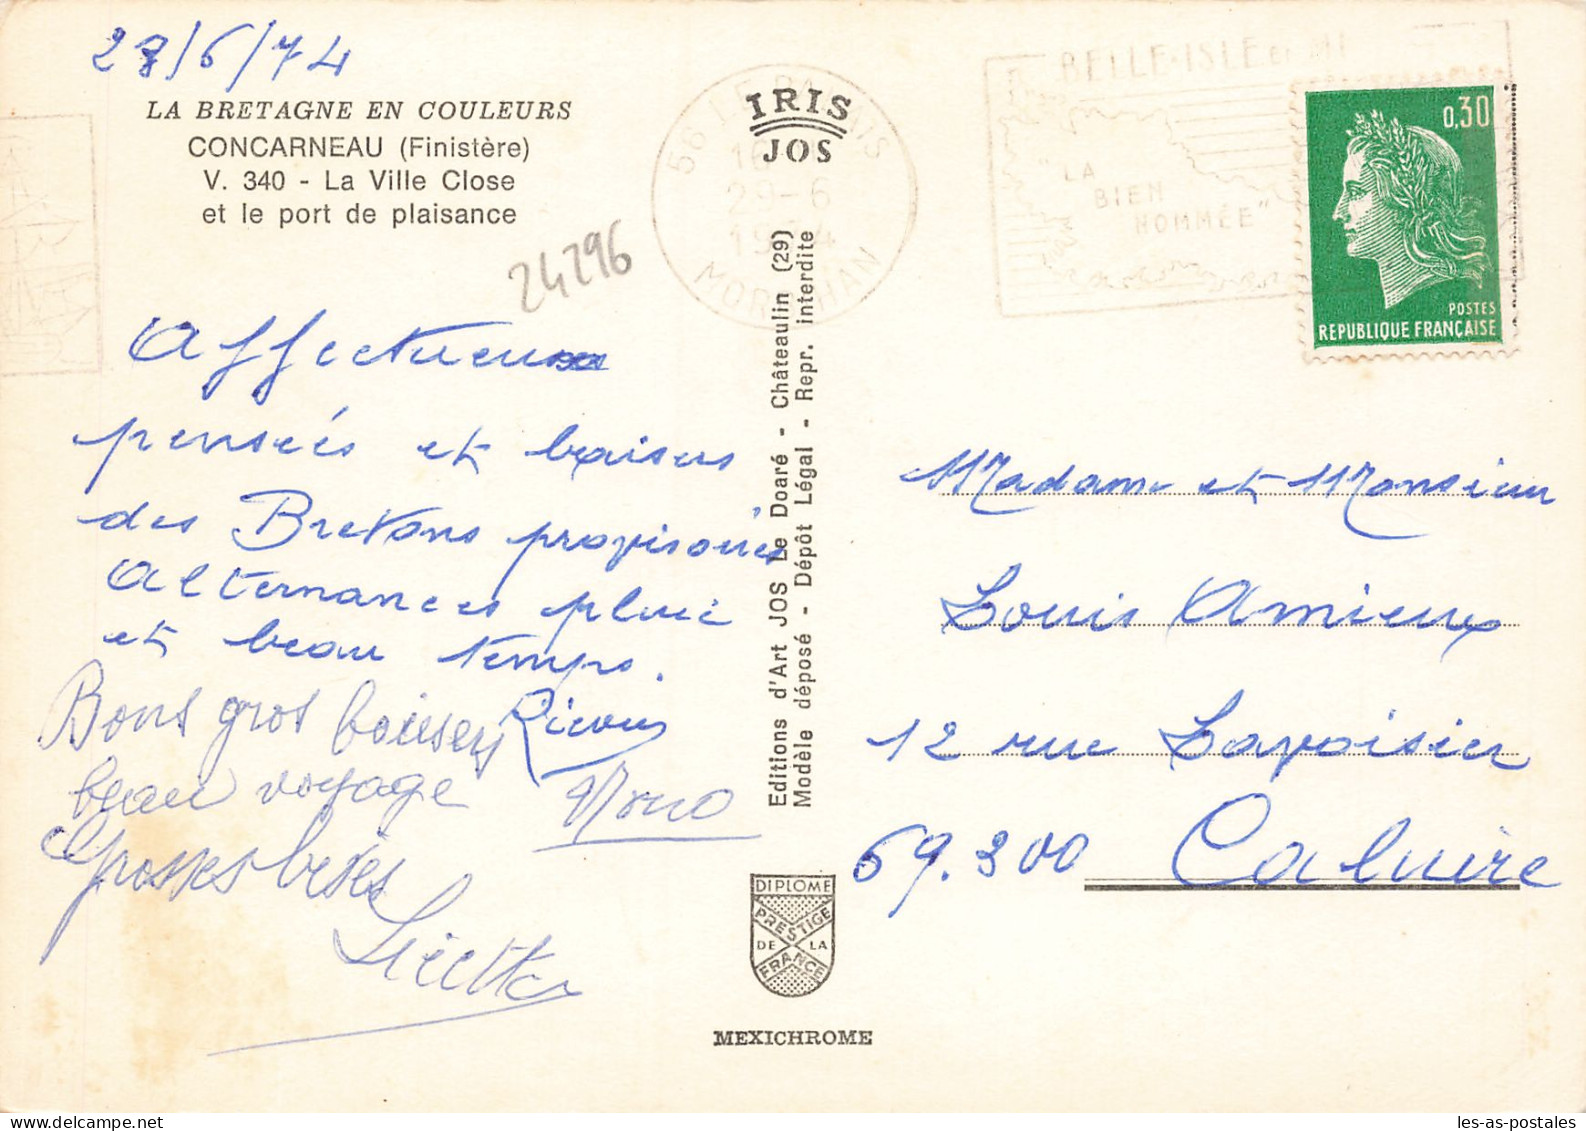 28/6/74
LA BRETAGNE EN COULEURS
CONCARNEAU (Finistère)
V. 340 - La Ville Close
et le port de plaisance
24296
Affectueuses
pensées et baisers
des Bretons provisoires
Alternances pluie
et beau temps.
Bons gros baisers
beau voyage
Nono
Grosses bises
IRIS
JOS
56 LE PALAIS
29-6
MORBIHAN
BELLE-ISLE en M
"LA
BIEN
NOMMÉE"
0,30
POSTES
REPUBLIQUE FRANÇAISE
Editions d'Art JOS Le Doaré - Châteaulin (29)
Modèle déposé - Dépôt Légal - Repr. interdite
Madame et Monsieur
Louis Amieux
12 rue Lavoisier
69.300 Caluire
DIPLOME
PRESTIGE
DE LA
FRANCE
MEXICHROME
les-as-postales